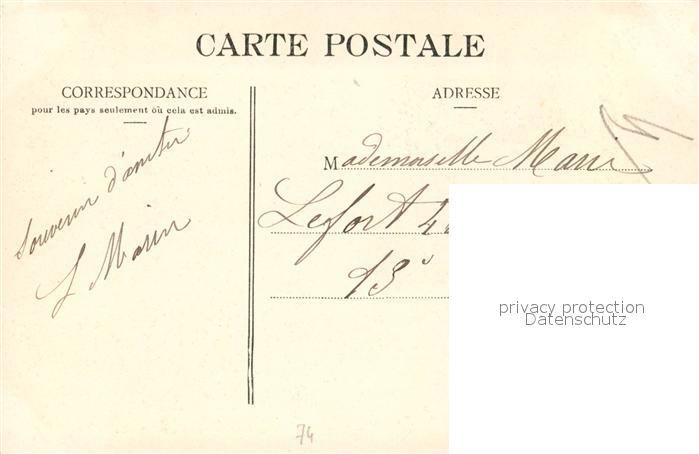 CARTE POSTALE
CORRESPONDANCE
pour les pays seulement où cela est admis.
Souvenir d'amitié
J Marin
ADRESSE
Mademoiselle Marie
Lefort
13e
privacy protection
Datenschutz
74